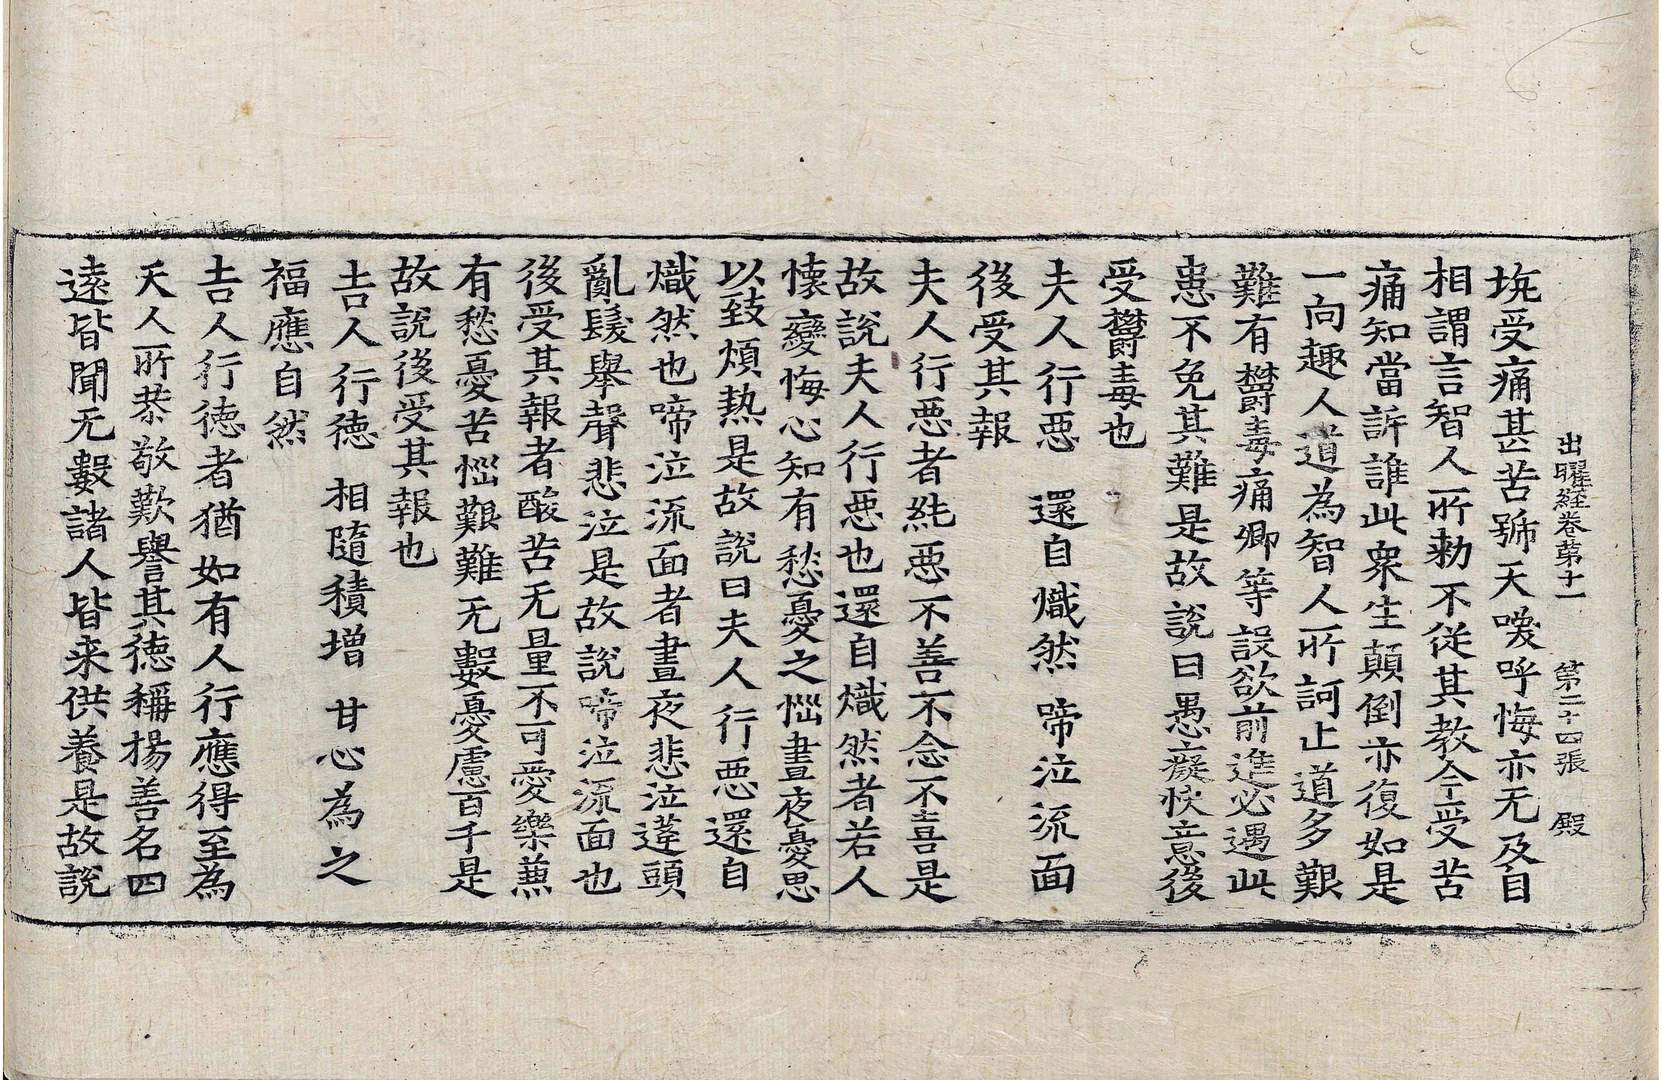 出曜経卷苐十一 第二十四張 殿
坑受痛甚苦號天喚呼悔亦无及自
相謂言智人所勑不從其教今受苦
痛知當訴誰此衆生顛倒亦復如是
一向趣人道為智人所訶止道多艱
難有欝毒痛卿等設欲前進必遇此
患不免其難是故說曰愚癡快意後
受欝毒也
夫人行惡 還自熾然 啼泣流面
後受其報
夫人行惡者純惡不善不念不喜是
故說夫人行惡也還自熾然者若人
懐變悔心知有愁憂之惱晝夜憂思
以致煩熱是故說曰夫人行惡還自
熾然也啼泣流面者晝夜悲泣蓬頭
亂髮舉聲悲泣是故說啼泣流面也
後受其報者酸苦无量不可愛樂蕉
有愁憂苦惱艱難无數憂慮百千是
故說後受其報也
吉人行徳 相隨積増 甘心為之
福應自然
吉人行徳者猶如有人行應得至為
天人所恭敬歎譽其徳稱揚善名四
逺皆聞无數諸人皆来供養是故說